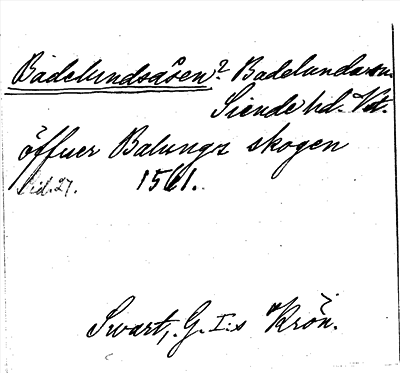 Badelundsåsen? Badelunda sn.
Siende hd. Vstm.
öffuer Balungz skogen
sid. 27. 1561.
Swart, G. I:s Krön.